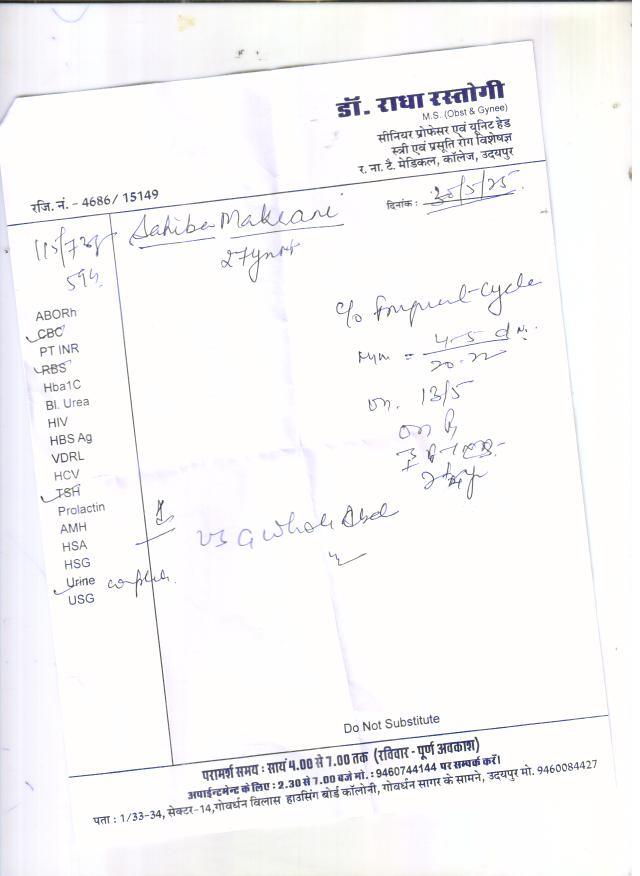 डॉ. राधा रस्तोगी
M.S. (Obst & Gynee)
सीनियर प्रोफेसर एवं यूनिट हेड
स्त्री एवं प्रसूति रोग विशेषज्ञ
र. ना. टै. मेडिकल, कॉलेज, उदयपुर
रजि. नं. - 4686/ 15149
दिनांक : 30/5/25
Sahiba Makrani
ABORh
CBC
PT INR
RBS
Hba1C
Bl. Urea
HIV
HBS Ag
VDRL
HCV
TSH
Prolactin
AMH
HSA
HSG
Urine
USG
c/o Frequent-cycle
4-5 d
20-22
13/5
on
USG Whole Abd
Do Not Substitute
परामर्श समय : सायं 4.00 से 7.00 तक (रविवार - पूर्ण अवकाश)
अपाईन्टमेन्ट के लिए : 2.30 से 7.00 बजे मो. : 9460744144 पर सम्पर्क करें।
पता : 1/33-34, सेक्टर-14,गोवर्धन विलास हाउसिंग बोर्ड कॉलोनी, गोवर्धन सागर के सामने, उदयपुर मो. 9460084427